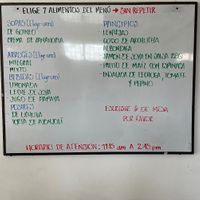 * ELIGE 7 ALIMENTOS DEL MENÚ → SIN REPETIR
SOPAS (Elige uno)
DE GUINEO
CREMA DE ZANAHORIA
ARROCES (Elige uno)
INTEGRAL
MIXTO
BEBIDAS (Elige uno)
LIMONADA
LECHE DE SOYA
JUGO DE PAPAYA
POSTRES
DE
TORTA DE
PRINCIPIOS
LENTEJAS
GUISO DE
ALBÓNDIGA
JAMÓN DE SOYA EN SALSA BBQ
PASTEL DE MAÍZ CON ESPINACA
ENSALADA DE LECHUGA, TOMATE
Y PEPINO
ESCRIBE # DE MESA
POR FAVOR
HORARIO DE ATENCIÓN: 11:45 am A 2:45 pm